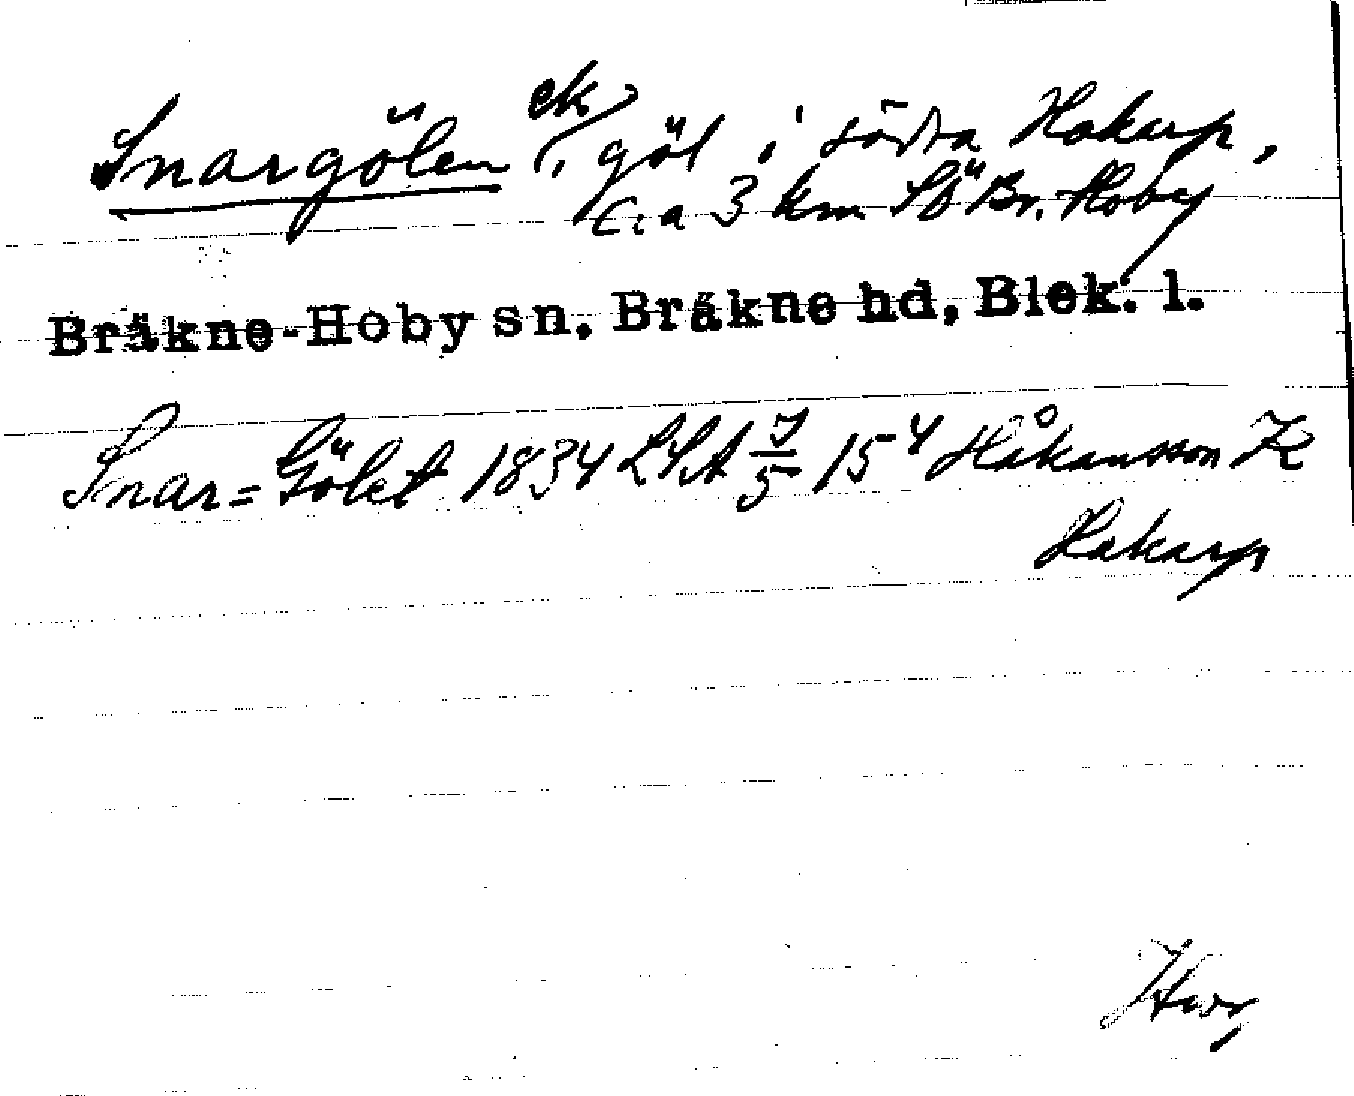 Snargölen ek, göl i södra Hakarp,
c:a 3 km SÖ Br. Hoby
Bräkne-Hoby sn. Bräkne hd, Blek. l.
Snar=Gölet 1834 LSA 15⁴ Håkansson K
Hakarp